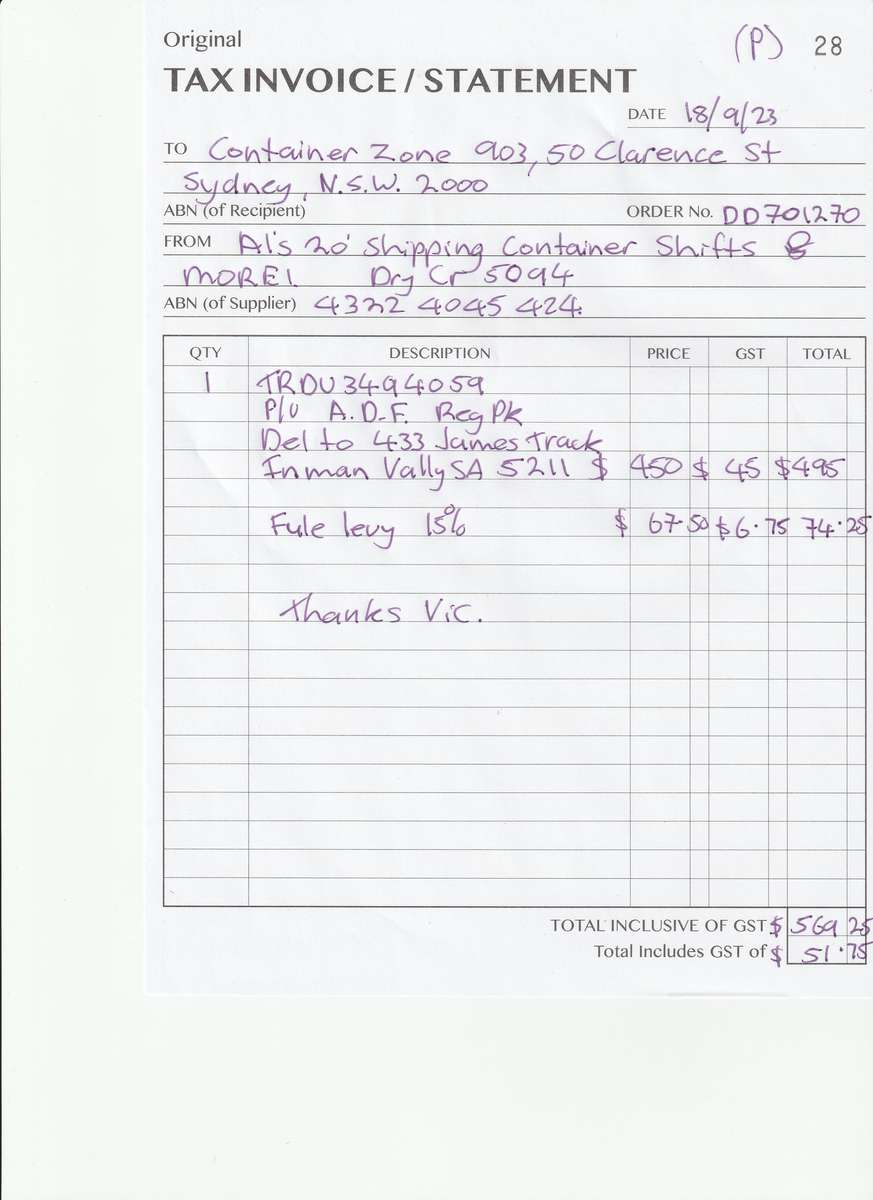 Original (P) 28
TAX INVOICE / STATEMENT
DATE 18/9/23
TO Container Zone 903, 50 Clarence St
Sydney, N.S.W. 2000
ABN (of Recipient) ORDER No. DD701270
FROM Al's 20' Shipping Container Shifts &
MORE! Dry Cr 5094
ABN (of Supplier) 4322 4045 424.
QTY DESCRIPTION PRICE GST TOTAL
1 TRDU3494059
P/U A.D.F. Reg Pk
Del to 433 James Track
Inman Vally SA 5211 $ 450 $ 45 $495
Fule levy 15% $ 67.50 $6.75 74.25
Thanks Vic.
TOTAL INCLUSIVE OF GST $ 569 25
Total Includes GST of $ 51.75